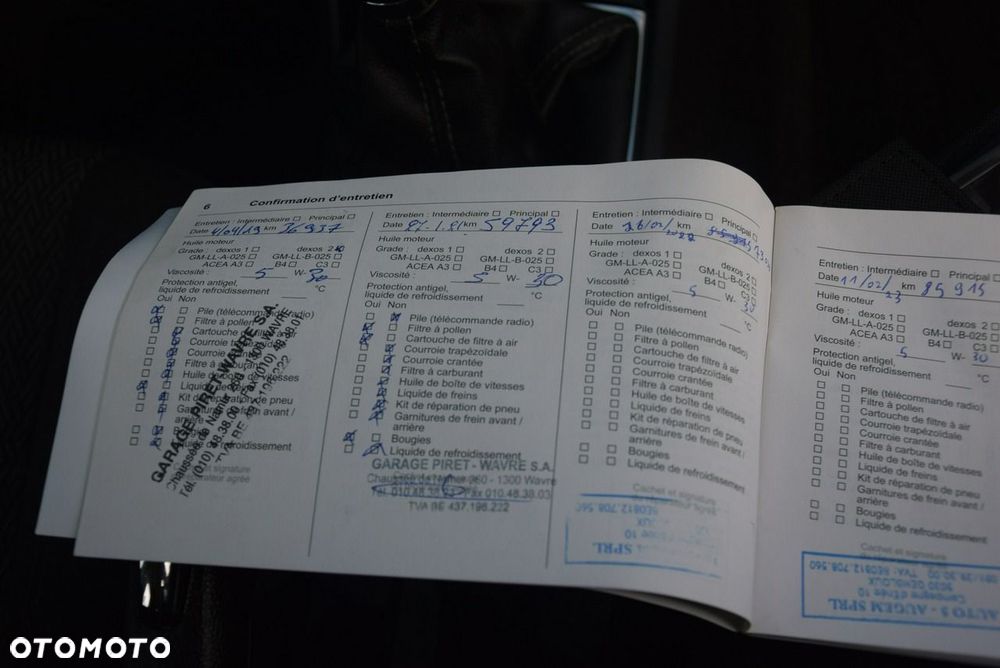 6 Confirmation d'entretien
Entretien : Intermédiaire Principal
Date 4/04/19 km 36937
Huile moteur
Grade : dexos 1 dexos 2
GM-LL-A-025 GM-LL-B-025
ACEA A3 B4 C3
Viscosité : 5 W- 30
Protection antigel,
liquide de refroidissement °C
Oui Non
Pile (télécommande radio)
Filtre à pollen
Cartouche
Courroie
Courroie
Filtre à
Huile de vitesses
Liquide
Kit de réparation
Garnitures frein avant /
refroidissement
GARAGE PIRET-WAVRE S.A.
Chaussée de Namur 260 - 1300 WAVRE
Tél. (010) 48.38.00 - Fax (010) 48.38.01
Entretien : Intermédiaire Principal
km 59793
Huile moteur
Grade : dexos 1 dexos 2
GM-LL-A-025 GM-LL-B-025
ACEA A3 B4 C3
Viscosité : 5 W- 30
Protection antigel,
liquide de refroidissement °C
Oui Non
Pile (télécommande radio)
Filtre à pollen
Cartouche de filtre à air
Courroie trapézoïdale
Courroie crantée
Filtre à carburant
Huile de boîte de vitesses
Liquide de freins
Kit de réparation de pneu
Garnitures de frein avant /
arrière
Bougies
Liquide de refroidissement
GARAGE PIRET - WAVRE S.A.
Chaussée de Namur 260 - 1300 Wavre
Tél. 010.48.38 Fax 010.48.38.03
TVA BE 437.196.222
Entretien : Intermédiaire Principal
Date km
Huile moteur
Grade : dexos 1 dexos 2
GM-LL-A-025 GM-LL-B-025
ACEA A3 B4 C3
Viscosité : 5 W- 30
Protection antigel,
liquide de refroidissement °C
Oui Non
Pile (télécommande radio)
Filtre à pollen
Cartouche de filtre à air
Courroie trapézoïdale
Courroie crantée
Filtre à carburant
Huile de boîte de vitesses
Liquide de freins
Kit de réparation de pneu
Garnitures de frein avant /
arrière
Bougies
Liquide de refroidissement
Cachet et signature
BE0812.708.560
SPRL
Entretien : Intermédiaire Principal
Date 11/02/23 km 85915
Huile moteur
Grade : dexos 1 dexos 2
GM-LL-A-025 GM-LL-B-025
ACEA A3 B4 C3
Viscosité : 5 W- 30
Protection antigel,
liquide de refroidissement °C
Oui Non
Pile (télécommande radio)
Filtre à pollen
Cartouche de filtre à air
Courroie trapézoïdale
Courroie crantée
Filtre à carburant
Huile de boîte de vitesses
Liquide de freins
Kit de réparation de pneu
Garnitures de frein avant /
arrière
Bougies
Liquide de refroidissement
Cachet et signature
AUTO 5 - AUGEM SPRL
Campagne d'Enée 10
5030 GEMBLOUX
TVA: BE0812.708.560
OTOMOTO